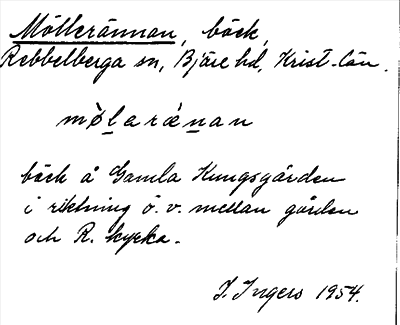 Möllerännan, bäck,
Rebbelberga sn, Bjäre hd, Krist-län.
mø̀larǽnan
bäck å Gamla Kungsgården
i riktning ö. v. mellan gården
och R. kyrka.
I. Ingers 1954.